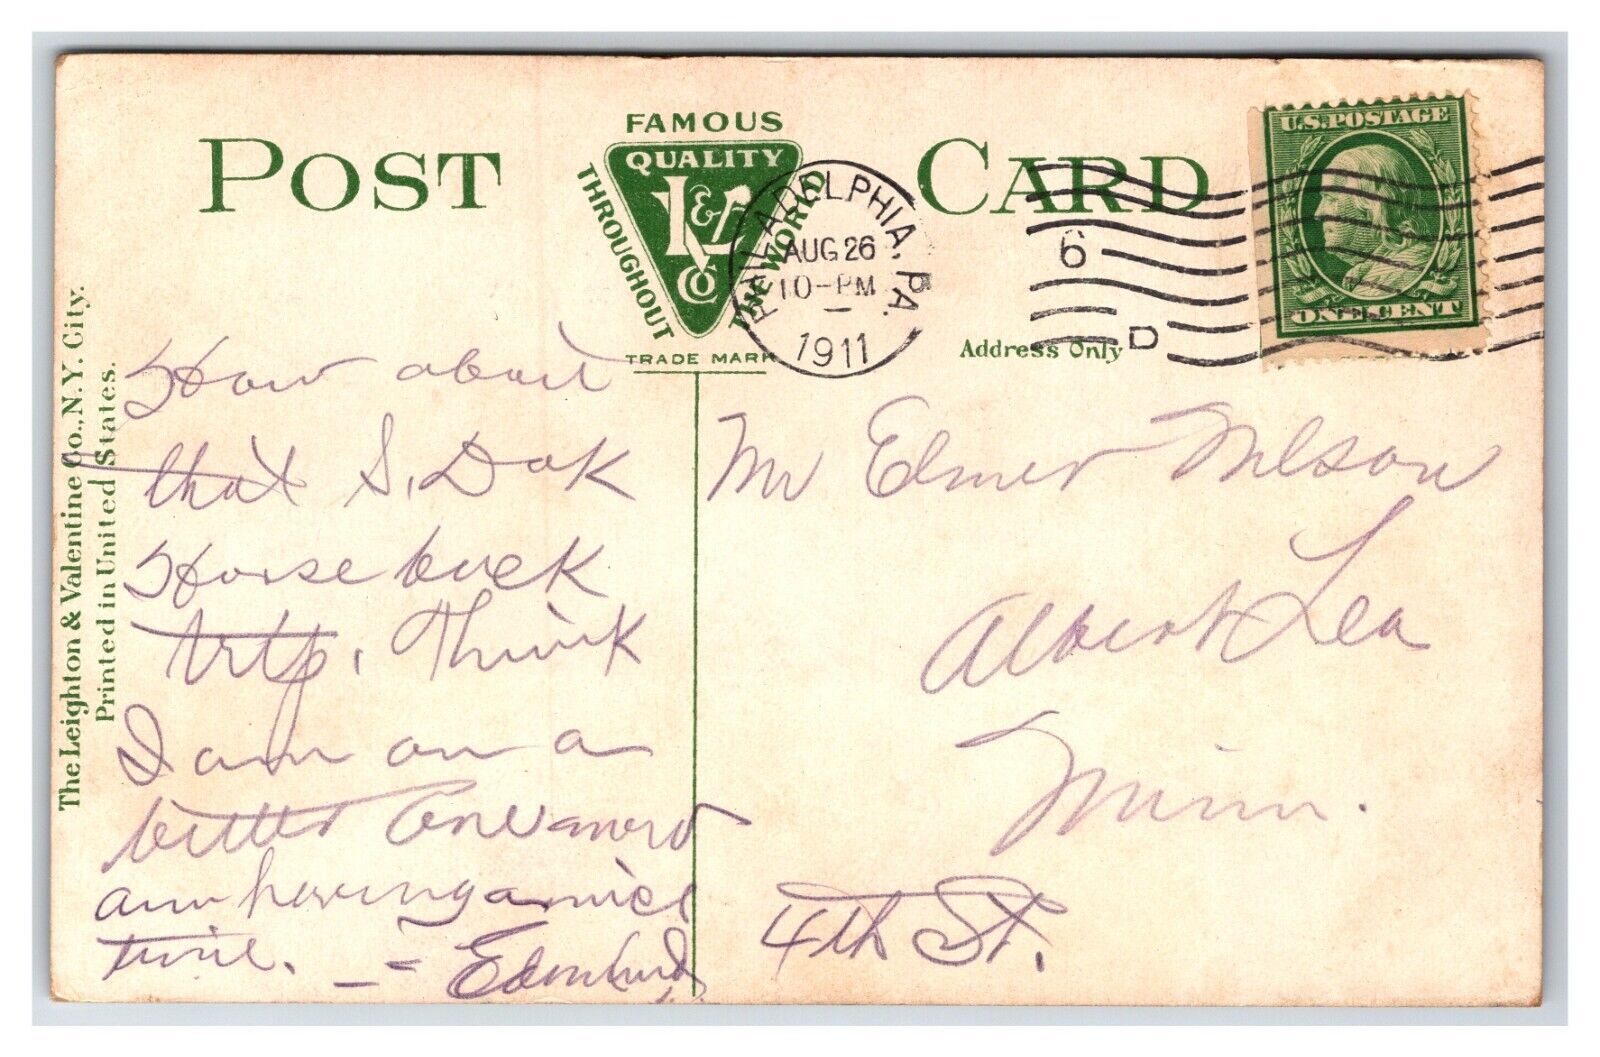 POST CARD
FAMOUS
QUALITY
THROUGHOUT
THE WORLD
L&V
CO
TRADE MARK
PHILADELPHIA, PA.
AUG 26
10-PM
1911
6
D
U.S. POSTAGE
ONE CENT
Address Only
The Leighton & Valentine Co., N.Y. City.
Printed in United States.
How about
that S. Dak
Horse back
trip. Think
I am on a
better one
am having a nice
time. - = Edmund
Mr Elmer Nelson
Albert Lea
Minn.
4th St.